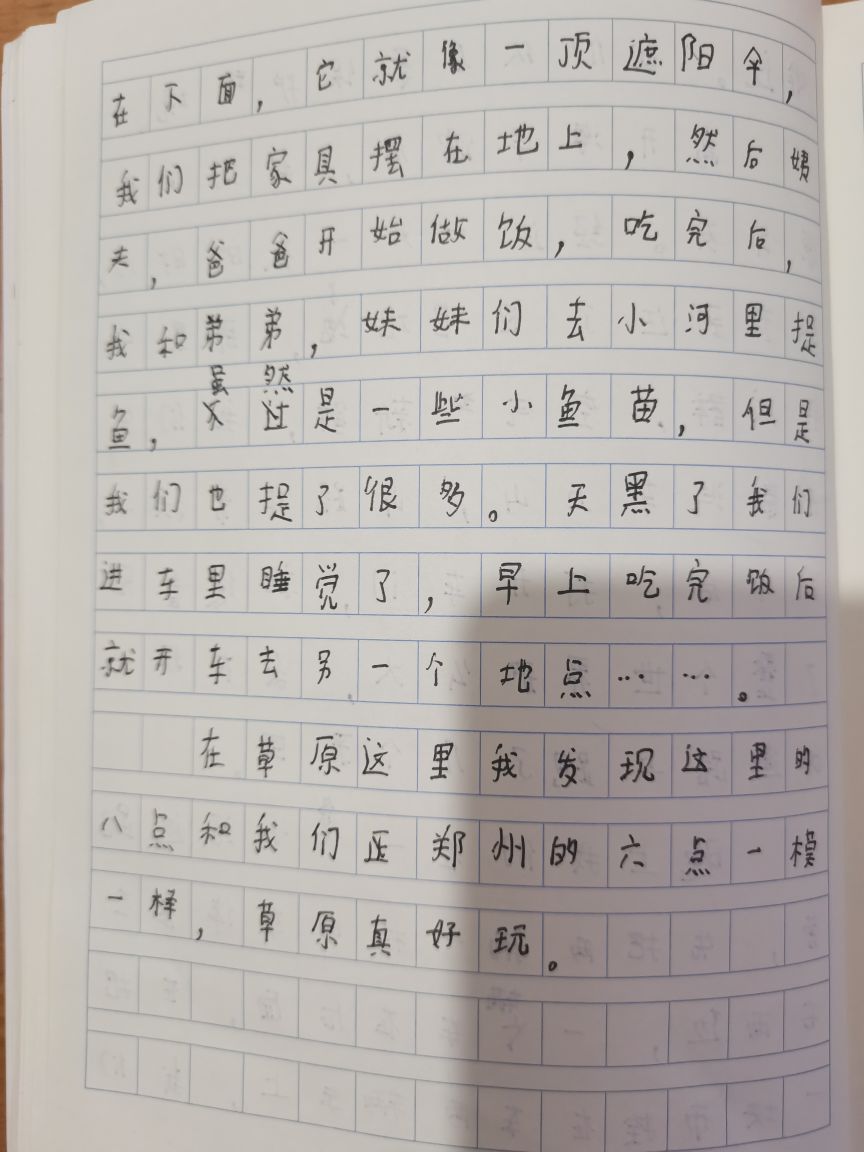 在下面，它就像一顶遮阳伞，
我们把家具摆在地上，然后姨
夫，爸爸开始做饭，吃完后，
我和弟弟，妹妹们去小河里捉
虽然
鱼，不过是一些小鱼苗，但是
我们也捉了很多。天黑了我们
进车里睡觉了，早上吃完饭后
就开车去另一个地点……。
在草原这里我发现这里的
八点和我们在郑州的六点一模
一样，草原真好玩。